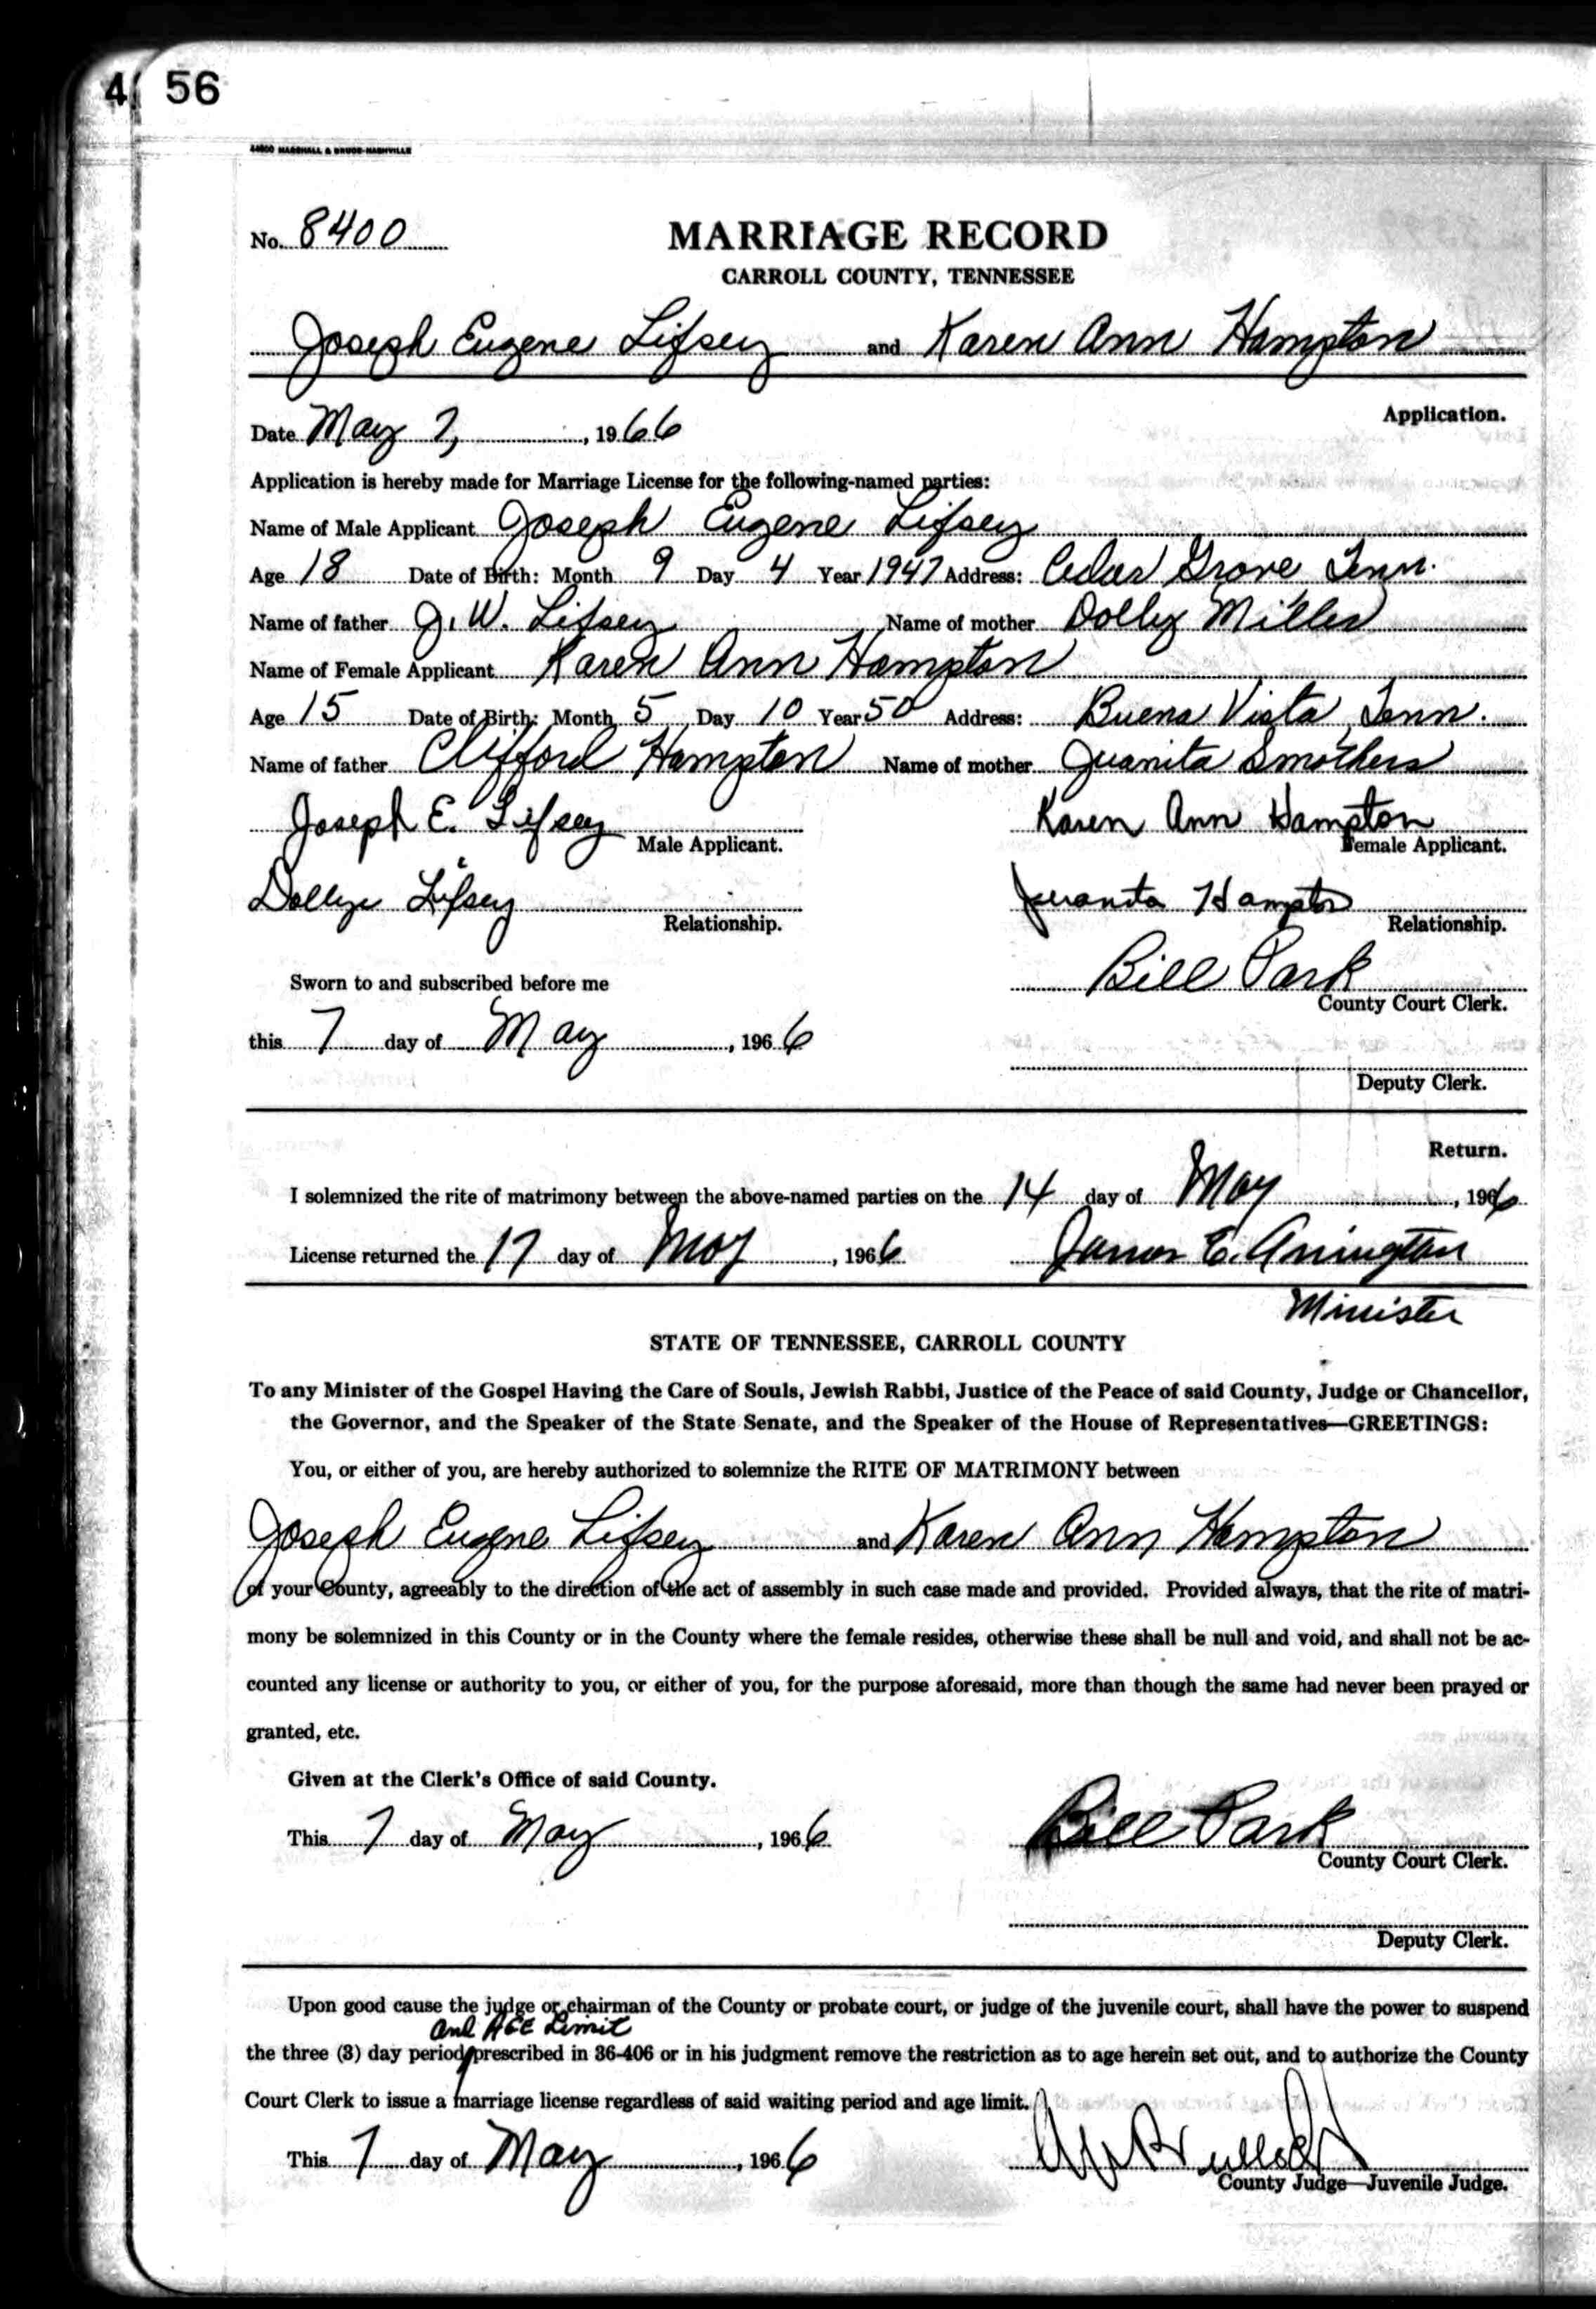 4 56
44800 MARSHALL & BRUCE-NASHVILLE
No. 8400
MARRIAGE RECORD
CARROLL COUNTY, TENNESSEE
Joseph Eugene Lifsey and Karen Ann Hampton
Application.
Date May 7, , 1966
Application is hereby made for Marriage License for the following-named parties:
Name of Male Applicant Joseph Eugene Lifsey
Age 18 Date of Birth: Month 9 Day 4 Year 1947 Address: Cedar Grove Tenn.
Name of father J. W. Lifsey Name of mother Dolly Miller
Name of Female Applicant Karen Ann Hampton
Age 15 Date of Birth: Month 5 Day 10 Year 50 Address: Buena Vista, Tenn.
Name of father Clifford Hampton Name of mother Juanita Smothers
Joseph E. Lifsey Karen Ann Hampton
Male Applicant. Female Applicant.
Dollye Lifsey Juanita Hampton
Relationship. Relationship.
Bill Park
Sworn to and subscribed before me
County Court Clerk.
this 7 day of May , 1966
Deputy Clerk.
Return.
I solemnized the rite of matrimony between the above-named parties on the 14 day of May , 1966
License returned the 17 day of May , 1966 James E. Arrington
Minister
STATE OF TENNESSEE, CARROLL COUNTY
To any Minister of the Gospel Having the Care of Souls, Jewish Rabbi, Justice of the Peace of said County, Judge or Chancellor,
the Governor, and the Speaker of the State Senate, and the Speaker of the House of Representatives—GREETINGS:
You, or either of you, are hereby authorized to solemnize the RITE OF MATRIMONY between
Joseph Eugene Lifsey and Karen Ann Hampton
of your County, agreeably to the direction of the act of assembly in such case made and provided. Provided always, that the rite of matri-
mony be solemnized in this County or in the County where the female resides, otherwise these shall be null and void, and shall not be ac-
counted any license or authority to you, or either of you, for the purpose aforesaid, more than though the same had never been prayed or
granted, etc.
Given at the Clerk's Office of said County.
This 7 day of May , 1966 Bill Park
County Court Clerk.
Deputy Clerk.
Upon good cause the judge or chairman of the County or probate court, or judge of the juvenile court, shall have the power to suspend
and AGE Limit
the three (3) day period prescribed in 36-406 or in his judgment remove the restriction as to age herein set out, and to authorize the County
Court Clerk to issue a marriage license regardless of said waiting period and age limit.
This 7 day of May , 1966
County Judge—Juvenile Judge.